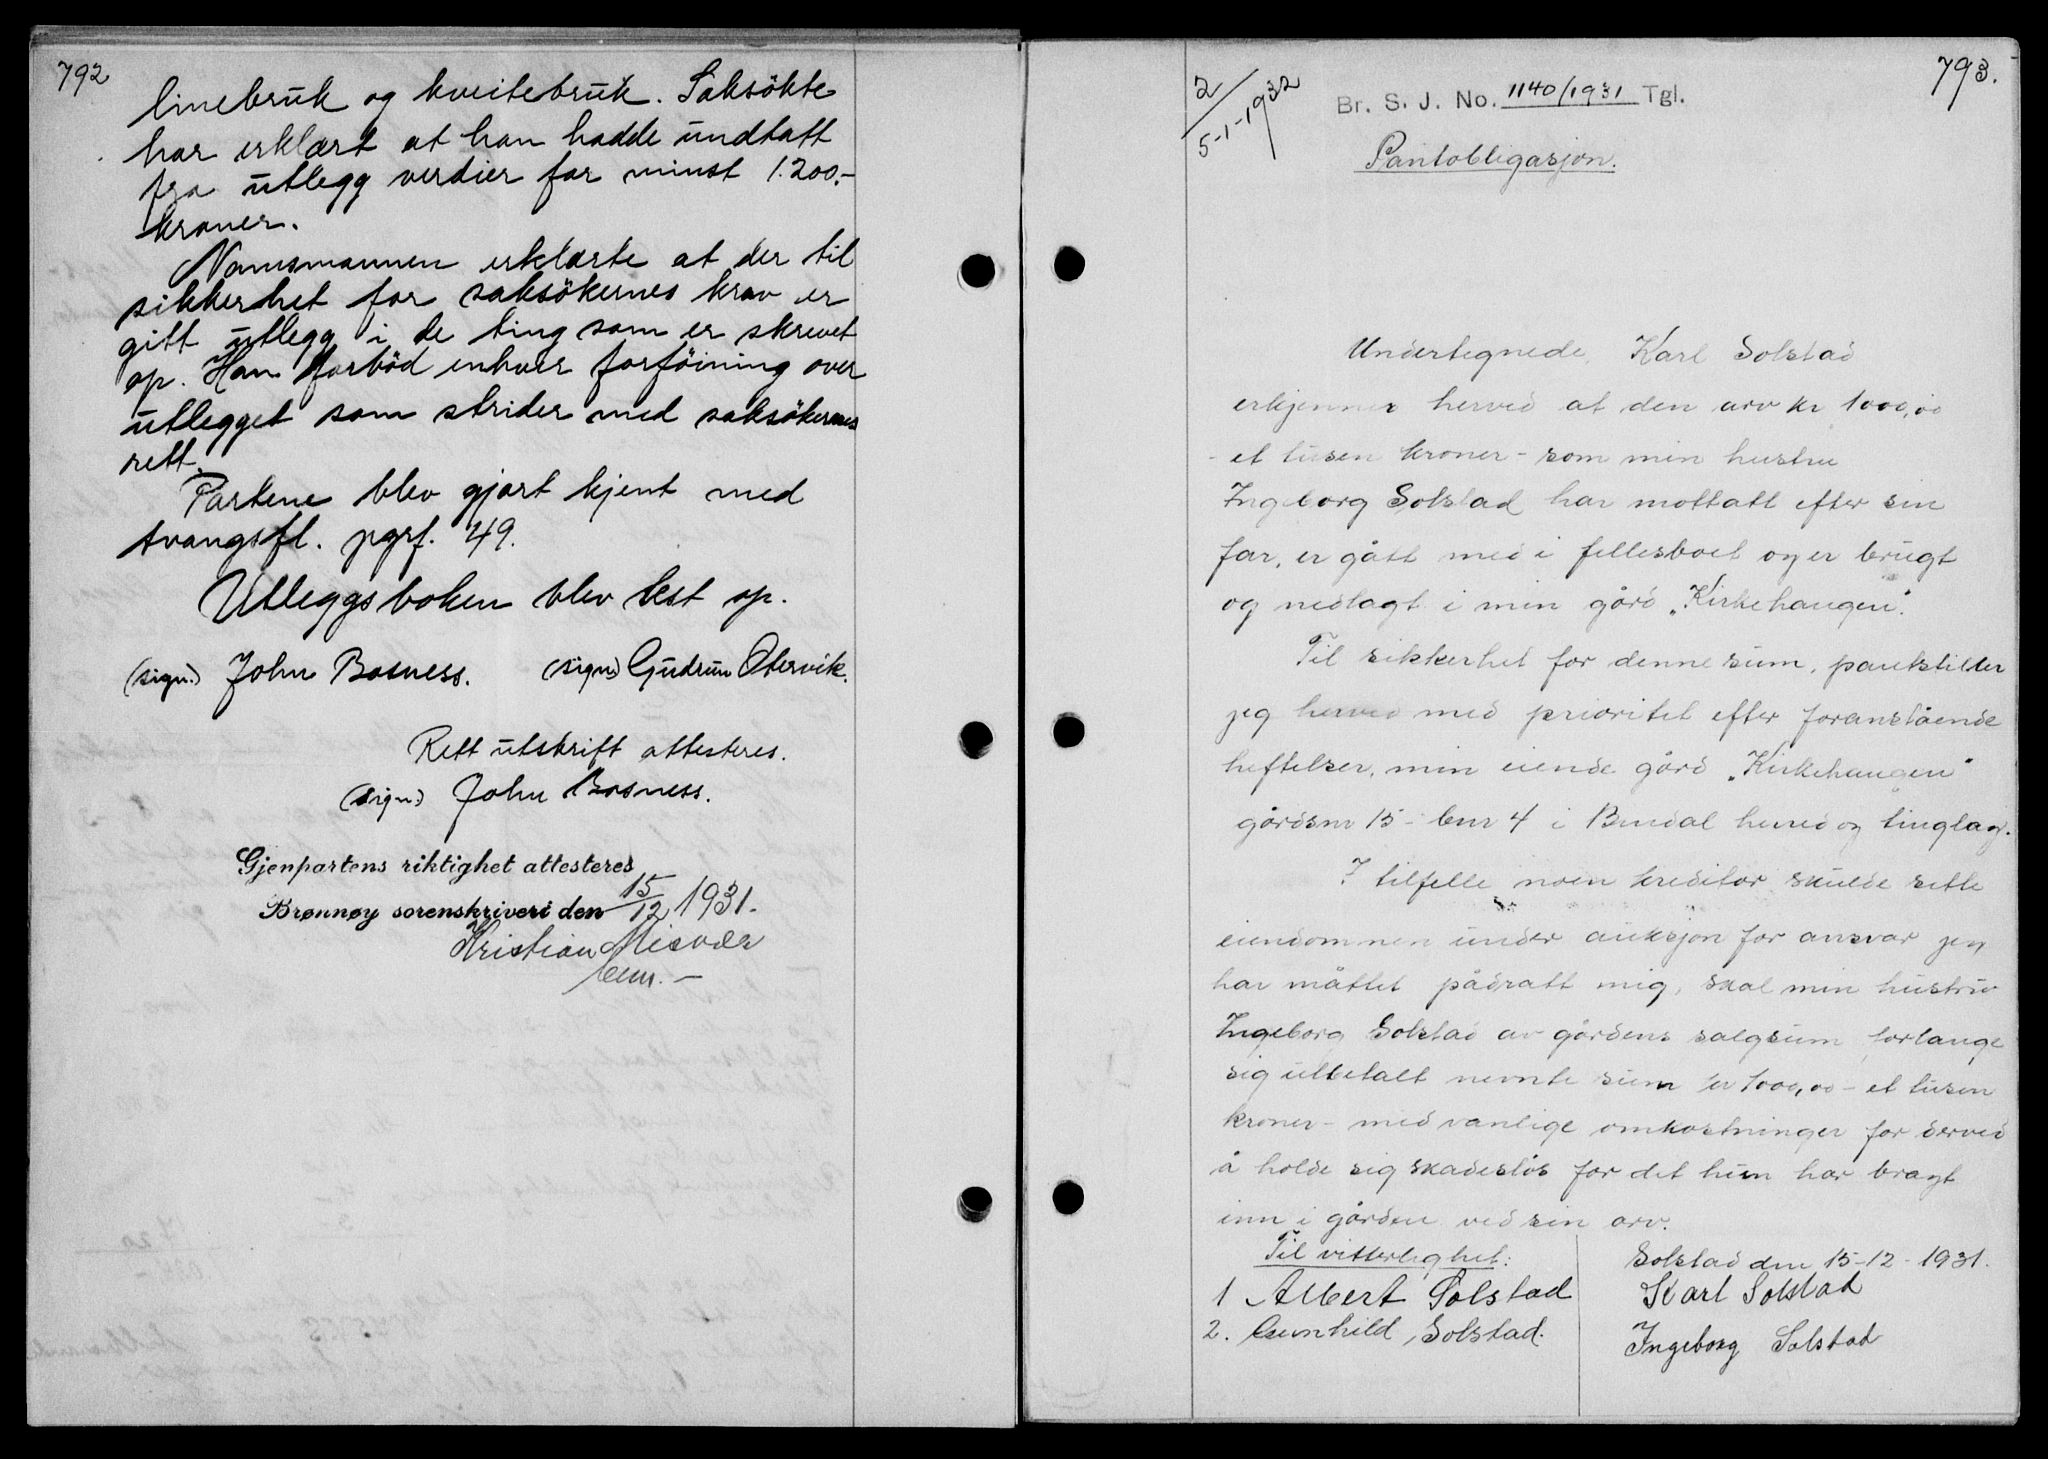 792
linebruk og kveitebruk. Saksökte
har erklært at han hadde undtatt
fra utlegg verdier for minst 1.200.-
kroner.
Namsmannen erklærte at der til
sikkerhet for saksökernes krav er
gitt utlegg i de ting som er skrevet
op. Han forböd enhver forföining over
utlegget som strider med saksökernes
rett.
Partene blev gjort kjent med
tvangsfl. pgrf. 49.
Utleggsboken blev lest op.
(sign.) John Bosness. (sign.) Gudrun Otervik.
Rett utskrift attesteres.
(sign.) John Bosness.
Gjenpartens riktighet attesteres
Brønnøy sorenskriveri den 15/12 1931.
Kristian Misvær
793.
2/5-1-1932
Br. S. J. No. 1140/1931 Tgl.
Pantobligasjon.
Undertegnede, Karl Solstad
erkjenner herved at den arv kr 1000,00
- et tusen kroner - som min hustru
Ingeborg Solstad har mottatt efter sin
far, er gått med i fellesboet og er brugt
og nedlagt i min gård „Kirkehaugen".
Til sikkerhet for denne sum, pantstiller
jeg herved med prioritet efter foranstående
heftelser, min eiende gård „Kirkehaugen"
gårdsnr 15 - bnr 4 i Bindal herred og tinglag.
I tilfelle noen kreditor skulde sette
eiendommen under auksjon for ansvar jeg
har måttet pådratt mig, skal min hustru
Ingeborg Solstad av gårdens salgsum forlange
sig utbetalt nevnte sum kr 1000,00 - et tusen
kroner - med vanlige omkostninger for derved
å holde sig skadeslös for det hun har bragt
inn i gården ved sin arv.
Til vitterlighet:
Solstad den 15-12-1931.
1 Albert Solstad
Karl Solstad
2. Gunhild Solstad.
Ingeborg Solstad